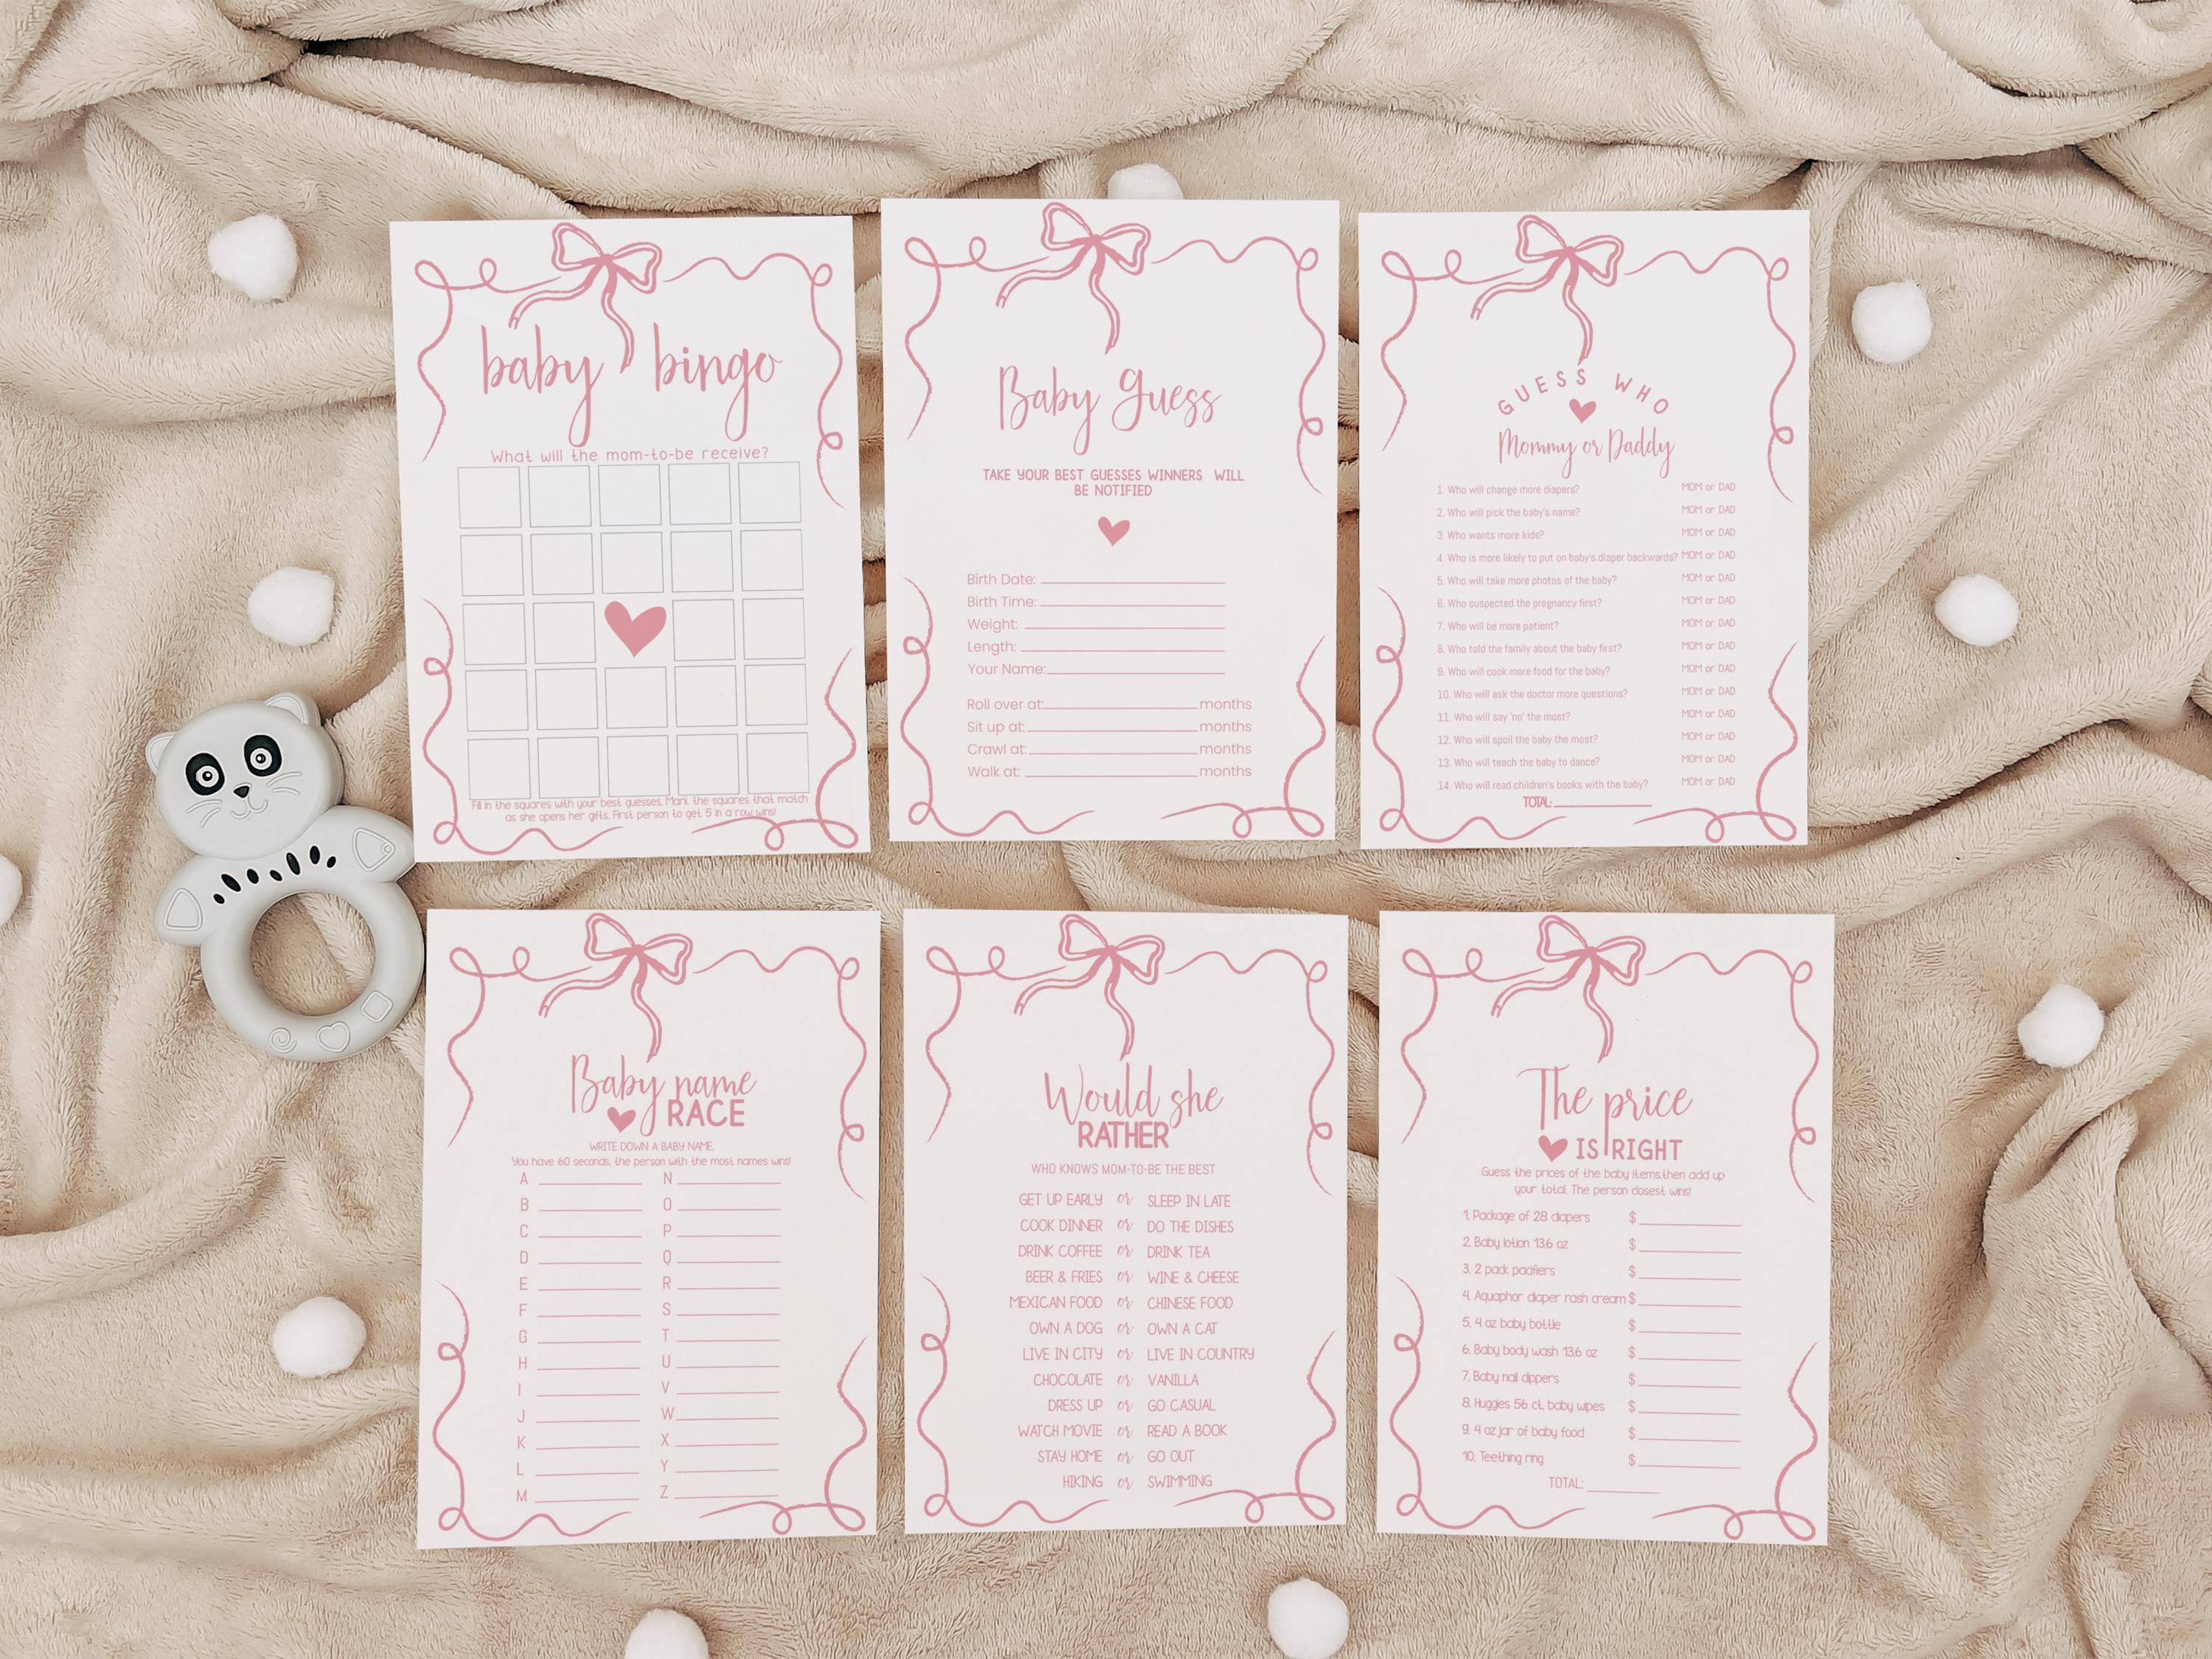 baby bingo
What will the mom-to-be receive?
Fill in the squares with your best guesses. Mark the squares that match
as she opens her gifts. First person to get 5 in a row wins!
Baby Guess
TAKE YOUR BEST GUESSES WINNERS WILL
BE NOTIFIED
Birth Date:
Birth Time:
Weight:
Length:
Your Name:
Roll over at: months
Sit up at: months
Crawl at: months
Walk at: months
GUESS WHO
Mommy or Daddy
1. Who will change more diapers? MOM or DAD
2. Who will pick the baby's name? MOM or DAD
3. Who wants more kids? MOM or DAD
4. Who is more likely to put on baby's diaper backwards? MOM or DAD
5. Who will take more photos of the baby? MOM or DAD
6. Who suspected the pregnancy first? MOM or DAD
7. Who will be more patient? MOM or DAD
8. Who told the family about the baby first? MOM or DAD
9. Who will cook more food for the baby? MOM or DAD
10. Who will ask the doctor more questions? MOM or DAD
11. Who will say 'no' the most? MOM or DAD
12. Who will spoil the baby the most? MOM or DAD
13. Who will teach the baby to dance? MOM or DAD
14. Who will read children's books with the baby? MOM or DAD
TOTAL:
Baby name
RACE
WRITE DOWN A BABY NAME.
You have 60 seconds, the person with the most names wins!
A N
B O
C P
D Q
E R
F S
G T
H U
I V
J W
K X
L Y
M Z
Would she
RATHER
WHO KNOWS MOM-TO-BE THE BEST
GET UP EARLY or SLEEP IN LATE
COOK DINNER or DO THE DISHES
DRINK COFFEE or DRINK TEA
BEER & FRIES or WINE & CHEESE
MEXICAN FOOD or CHINESE FOOD
OWN A DOG or OWN A CAT
LIVE IN CITY or LIVE IN COUNTRY
CHOCOLATE or VANILLA
DRESS UP or GO CASUAL
WATCH MOVIE or READ A BOOK
STAY HOME or GO OUT
HIKING or SWIMMING
The price
IS RIGHT
Guess the prices of the baby items,then add up
your total. The person closest wins!
1. Package of 28 diapers $
2. Baby lotion 13.6 oz $
3. 2 pack pacifiers $
4. Aquaphor diaper rash cream $
5. 4 oz baby bottle $
6. Baby body wash 13.6 oz $
7. Baby nail clippers $
8. Huggies 56 ct. baby wipes $
9. 4 oz jar of baby food $
10. Teething ring $
TOTAL: